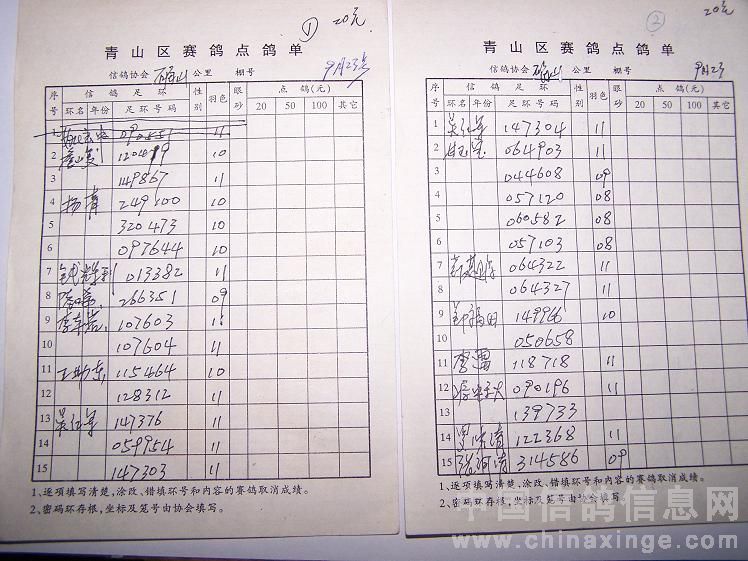 ① 20元
青山区赛鸽点鸽单
信鸽协会 公里 棚号 9月23
序号 信鸽足环 性别 羽色 眼砂 点鸽(元)
环名 年份 足环号码 20 50 100 其它
1 090551 11
2 10
3 149867 11
4 杨青 249100 10
5 320473 10
6 097644 10
7 013382 11
8 266351 09
9 107603 11
10 107604 11
11 115464 10
12 128312 11
13 147376 11
14 059954 11
15 147303 11
1、逐项填写清楚,涂改、错填环号和内容的赛鸽取消成绩。
2、密码环存根,坐标及笼号由协会填写。
② 20元
青山区赛鸽点鸽单
信鸽协会 公里 棚号 9月23
序号 信鸽足环 性别 羽色 眼砂 点鸽(元)
环名 年份 足环号码 20 50 100 其它
1 147304 11
2 064903 11
3 044608 09
4 057120 08
5 060582 08
6 057103 08
7 064322 11
8 064327 11
9 149966 10
10 050658
11 李雷 118718 11
12 090196 11
13 139733
14 122368 11
15 314586 09
1、逐项填写清楚,涂改、错填环号和内容的赛鸽取消成绩。
2、密码环存根,坐标及笼号由协会填写。
中国信鸽信息网
www.chinaxinge.com